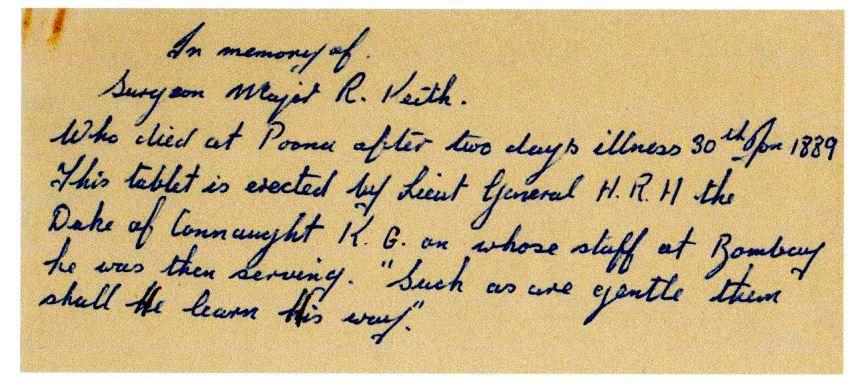 In memory of.
Surgeon Major R. Keith.
Who died at Poona after two days illness 30th Jan 1889
This tablet is erected by Lieut General H.R.H the
Duke of Connaught K.G. on whose staff at Bombay
he was then serving. "Such as are gentle them
shall He learn His way".